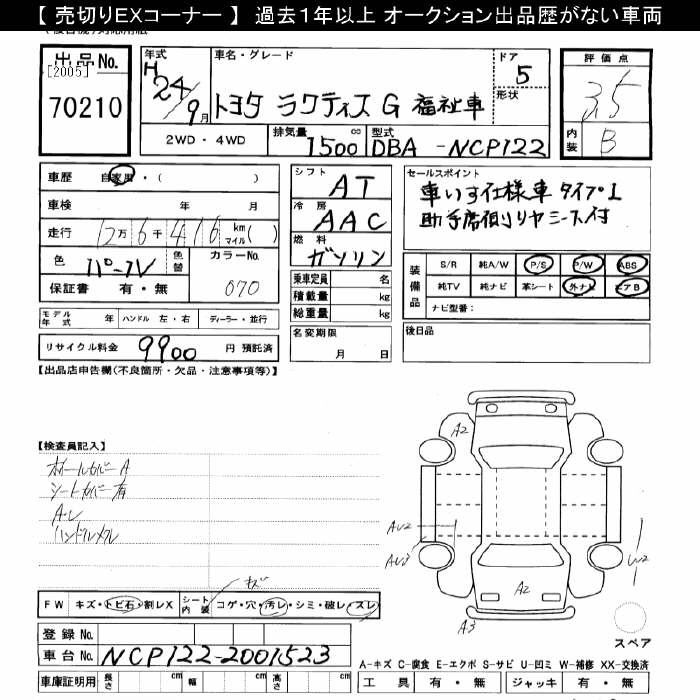 【 売切りEXコーナー 】 過去1年以上 オークション出品歴がない車両
出品No.
[2005]
70210
年式
H
24/9月
車名・グレード
トヨタ ラクティス G 福祉車
ドア
5
形状
評価点
3.5
内装
B
2WD・4WD
排気量
1500
cc
型式
DBA -NCP122
車歴
自家用・( )
車検
年 月
走行
12万6千416
km
マイル( )
色
パープル
色替
カラーNo.
070
保証書 有・無
シフト
AT
冷房
AAC
燃料
ガソリン
乗車定員 名
積載量 kg
総重量 kg
セールスポイント
車いす仕様車 タイプ1
助手席側リヤシート付
装備品
S/R 純A/W P/S P/W ABS
純TV 純ナビ 革シート 外ナビ エアB
ナビ型番:
モデル年式 年 ハンドル 左・右 ディーラー・並行
リサイクル料金 9900 円 預託済
名変期限
月 日
後日品
【出品店申告欄(不良箇所・欠品・注意事項等)】
【検査員記入】
ホイールカバーA
シートカバー有
A-レ
ハンドルスレ
A2
AU2
AU3
W2
A2
A3
スペア
キズ
FW キズ・トビ石・割レX
シート内装 コゲ・穴・汚レ・シミ・破レ・スレ
登録No.
車台No. NCP122-2001523
車庫証明用 長さ cm 幅 cm 高さ cm
A-キズ C-腐食 E-エクボ S-サビ U-凹ミ W-補修 XX-交換済
工具 有・無 ジャッキ 有・無